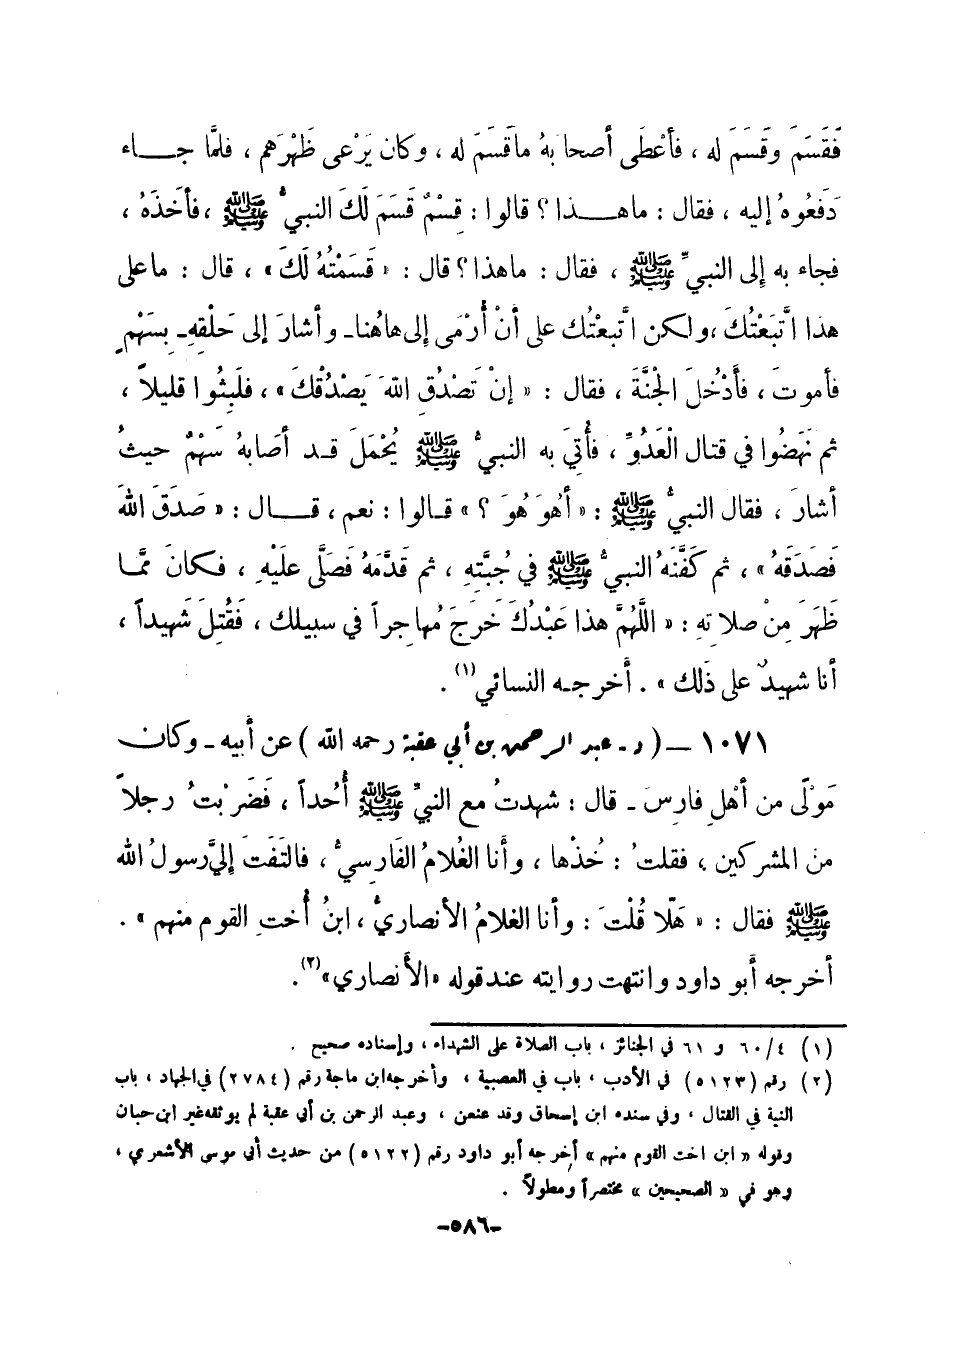 فَقَسَمَ وقَسَمَ له ، فأعْطَى أصحابهُ ماقَسَمَ له ، وكان يَرْعى ظَهْرَهم ، فلمَّا جاء
دَفَعُوهُ إليه ، فقال : ماهذا ؟ قالوا : قِسْمٌ قَسَمَ لَكَ النبيُّ ﷺ ، فأخَذَهُ ،
فجاء به إلى النبيِّ ﷺ ، فقال : ماهذا ؟ قال : « قَسَمْتُهُ لَكَ » ، قال : ماعلى
هذا اتَّبَعْتُكَ ، ولكن اتَّبعْتُك على أنْ أُرْمَى إلى هاهُنا ـ وأشارَ إلى حَلْقِهِ ـ بِسَهْمٍ
فأموتَ ، فأَدْخُلَ الجْنَّةَ ، فقال : « إنْ تَصْدُقِ اللهَ يَصْدُقْكَ » ، فلَبِثُوا قليلاً ،
ثم نَهَضُوا في قتال الْعَدُوِّ ، فأُتِيَ به النبيُّ ﷺ يُحْمَلَ قد أصَابهُ سَهْمٌ حيثُ
أشارَ ، فقال النبيُّ ﷺ : « أهُوَ هُوَ ؟ » قالوا : نعم ، قال : « صَدَقَ اللهَ
فَصَدَقَهُ » ، ثم كَفَّنَهُ النبيُّ ﷺ في جُبَّتِهِ ، ثم قَدَّمَهُ فَصَلَّى علَيْهِ ، فكانَ ممَّا
ظَهَرَ مِنْ صلاتهِ : « اللَّهُمَّ هذا عَبْدُكَ خَرجَ مُهاجراً في سبيلك ، فَقُتِلَ شَهيداً ،
أنا شهيدٌ على ذَلك » . أخرجه النسائي (١) .
١٠٧١ – ( د ـ عبد الرحمن بن أبي عقبة رحمه الله ) عن أبيه ـ وكان
مَوْلًى من أهْلِ فارسَ ـ قال : شهدتُ مع النبيِّ ﷺ أُحُداً ، فَضَرَبْتُ رجلاً
من المشركين ، فقلتُ : خُذْها ، وأنا الغُلامُ الفَارِسيُّ ، فالتَفَتَ إليَّ رسولُ الله
ﷺ فقال : « هَلَّا قُلْتَ : وأنا الغلامُ الأنصاريُّ ، ابنُ أُختِ القوم منهم » .
أخرجه أبو داود وانتهت روايته عند قوله « الأنصاري » (٢) .
(١) ٤/ ٦٠ و ٦١ في الجنائز ، باب الصلاة على الشهداء ، وإسناده صحيح .
(٢) رقم (٥١٢٣) في الأدب ، باب في العصبية ، وأخرجه ابن ماجة رقم (٢٧٨٤) في الجهاد ، باب
النية في القتال ، وفي سنده ابن إسحاق وقد عنعن ، وعبد الرحمن بن أبي عقبة لم يوثقه غير ابن حبان
وقوله « ابن اخت القوم منهم » أخرجه أبو داود رقم (٥١٢٢) من حديث أبي موسى الأشعري ،
وهو في « الصحيحين » مختصراً ومطولاً .
-٥٨٦-